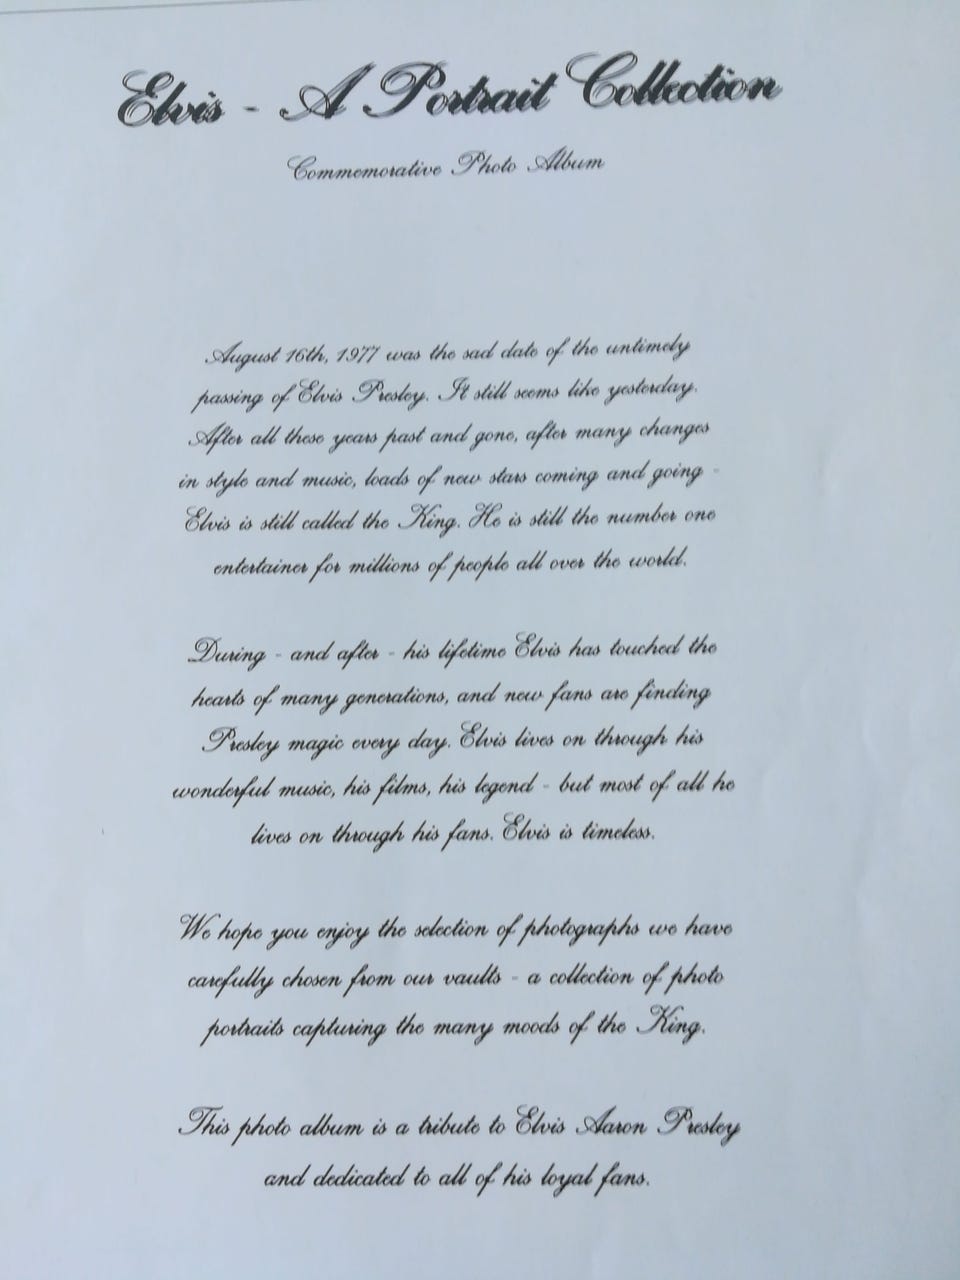 Elvis - A Portrait Collection
Commemorative Photo Album
August 16th, 1977 was the sad date of the untimely
passing of Elvis Presley. It still seems like yesterday.
After all these years past and gone, after many changes
in style and music, loads of new stars coming and going -
Elvis is still called the King. He is still the number one
entertainer for millions of people all over the world.
During - and after - his lifetime Elvis has touched the
hearts of many generations, and new fans are finding
Presley magic every day. Elvis lives on through his
wonderful music, his films, his legend - but most of all he
lives on through his fans. Elvis is timeless.
We hope you enjoy the selection of photographs we have
carefully chosen from our vaults - a collection of photo
portraits capturing the many moods of the King.
This photo album is a tribute to Elvis Aaron Presley
and dedicated to all of his loyal fans.